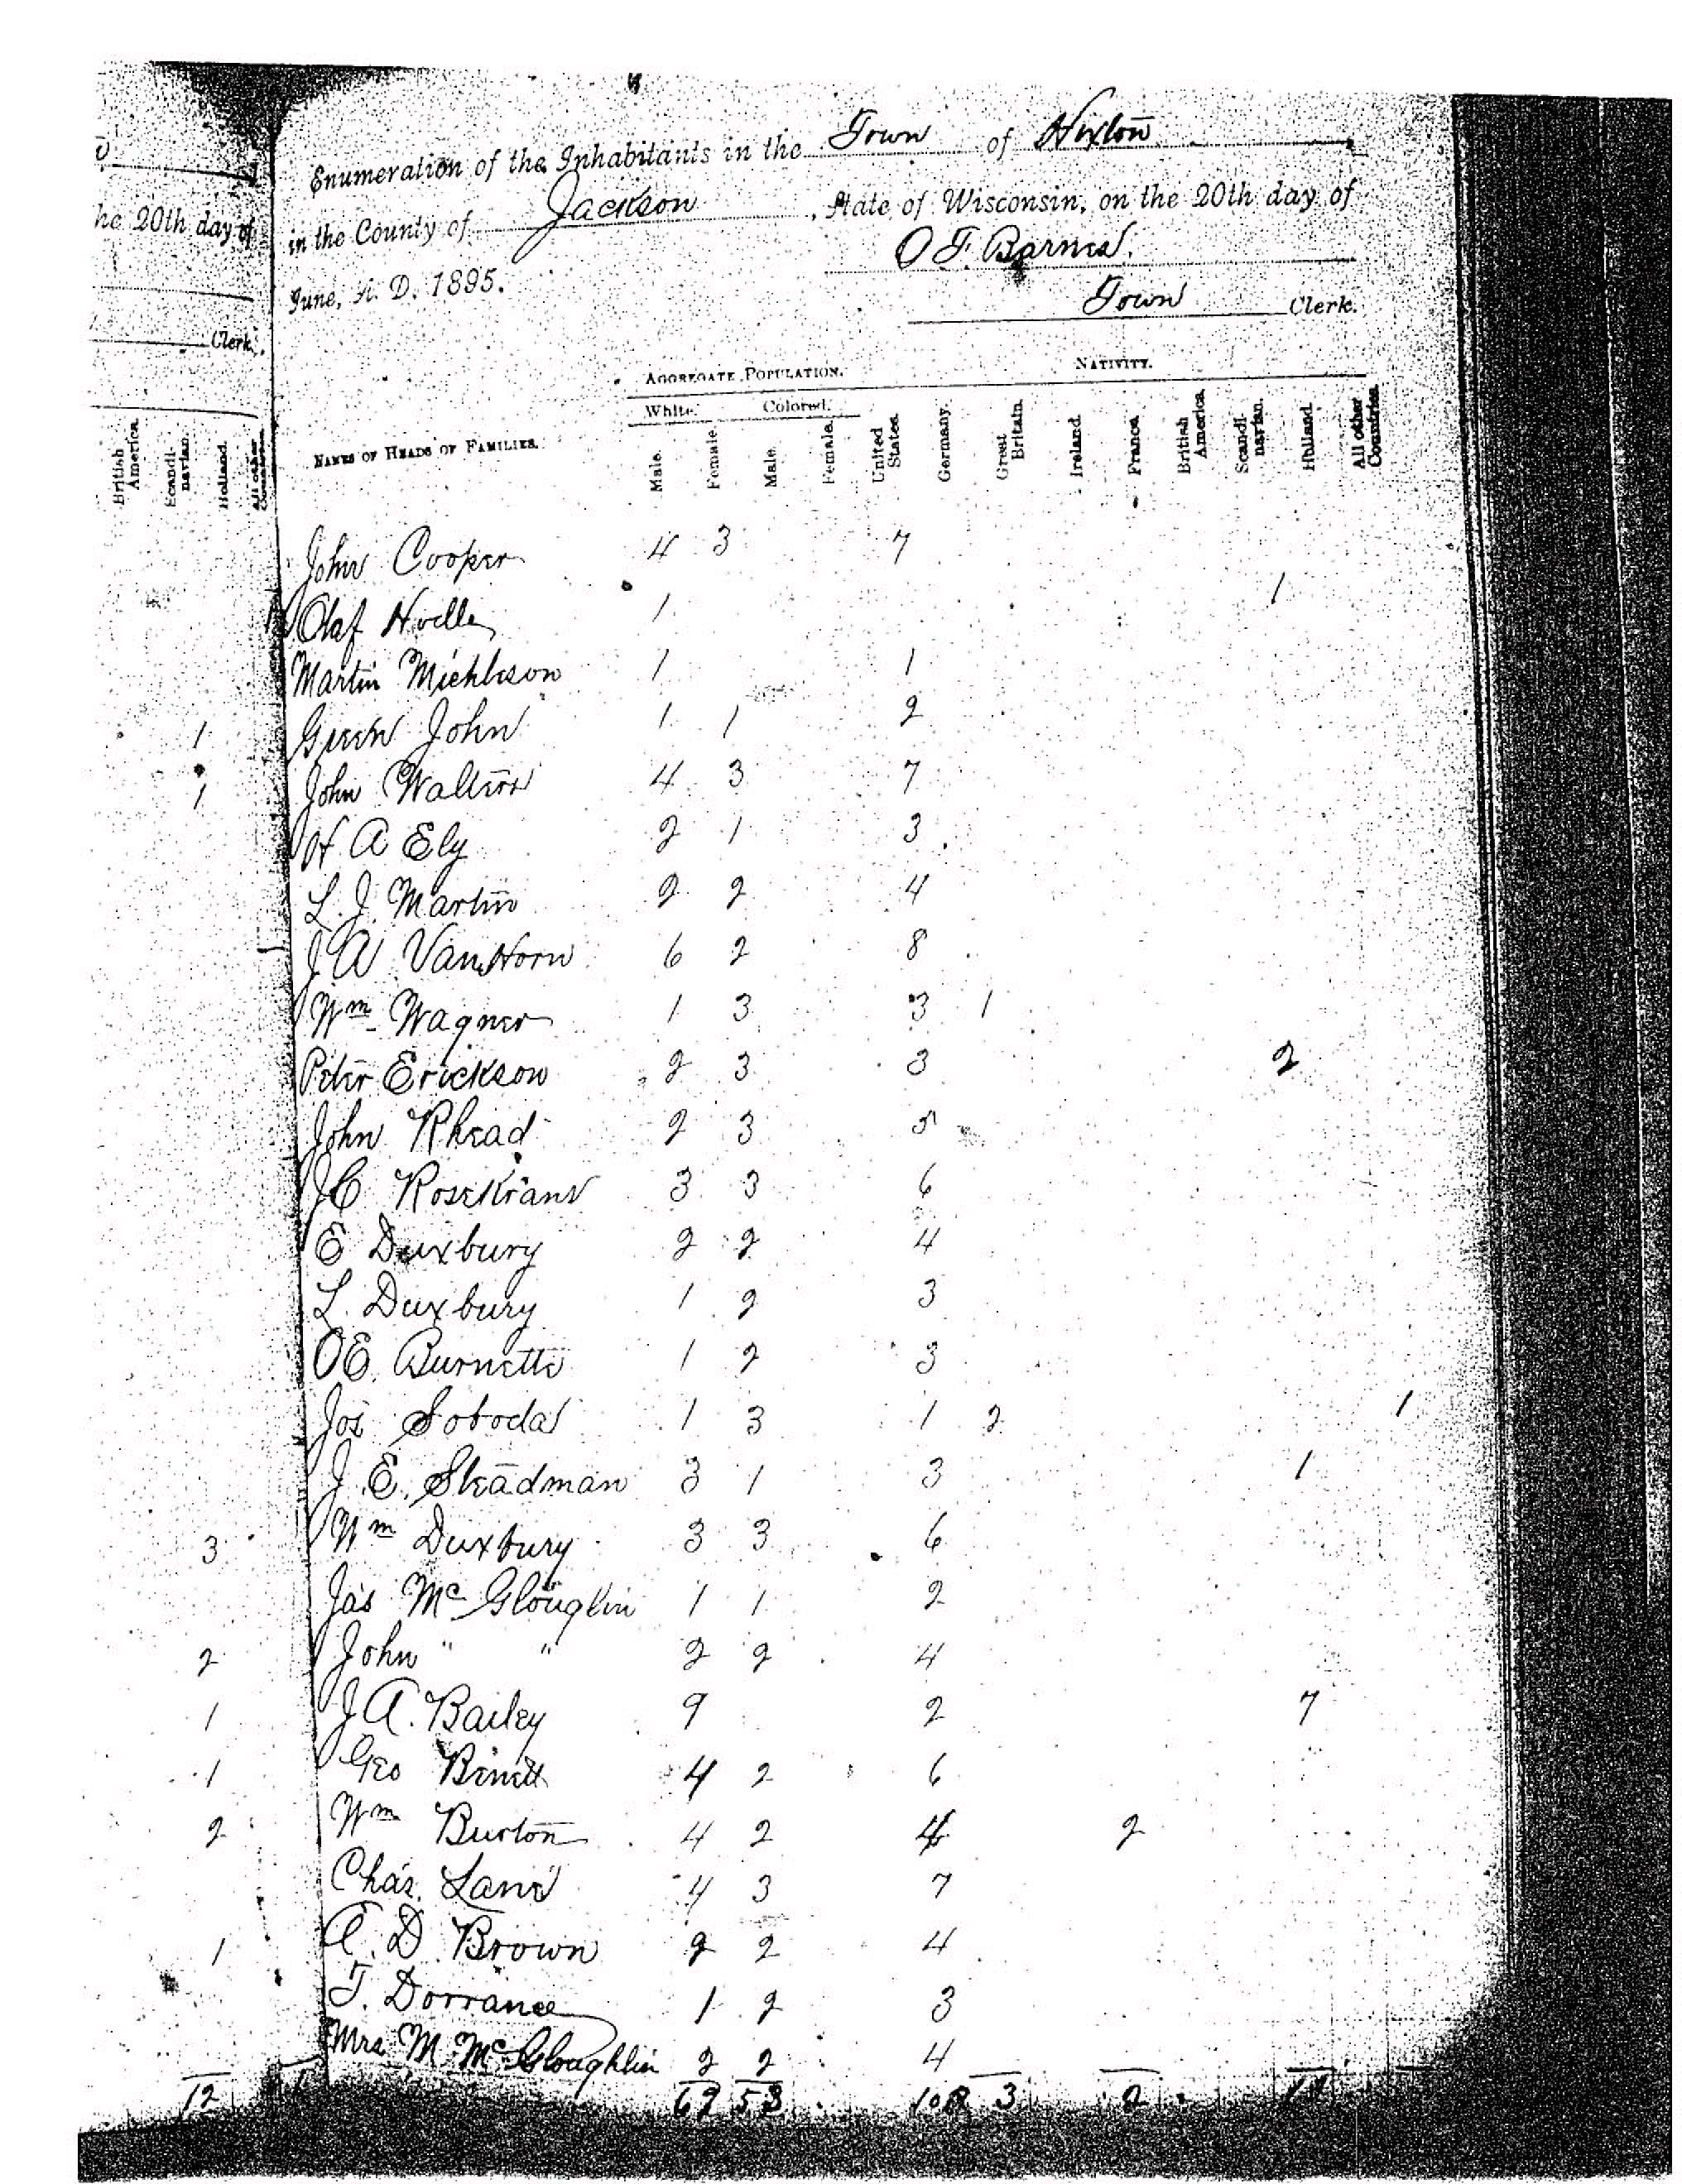 Enumeration of the Inhabitants in the Town of Hixton
he 20th day of
in the County of Jackson, State of Wisconsin, on the 20th day of
June, A. D. 1895.
O F. Barnes.
Town Clerk.
Clerk.
AGGREGATE POPULATION. NATIVITY.
White. Colored.
British America. Scandi-navian. Holland. All other Countries.
NAMES OF HEADS OF FAMILIES. Male. Female. Male. Female. United States. Germany. Great Britain. Ireland. France. British America. Scandi-navian. Holland. All other Countries.
John Cooper 4 3 7
Olaf 1 1
Martin Michleson 1 1
1 Green John 1 1 2
1 John Walters 4 3 7
H A Ely 2 1 3
L. J. Martin 2 2 4
J W VanHorn 6 2 8
Wm Wagner 1 3 3 1
Peter Erickson 2 3 3 2
John Rhead 2 3 5
J C Rosekrans 3 3 6
E Duxbury 2 2 4
L. Duxbury 1 2 3
O E. Burnette 1 2 3
Jos Soboda 1 3 1 2 1
J. E. Steadman 3 1 3 1
3 Wm Duxbury 3 3 6
Jas McGloughlin 1 1 2
2 John " " 2 2 4
1 J A. Bailey 9 2 7
1 Geo Binett 4 2 6
2 Wm Burton 4 2 4 2
Chas. Lane 4 3 7
1 A. D. Brown 2 2 4
T. Dorrance 1 2 3
Mrs M McGloughlin 2 2 4
12 69 53 108 3 2 11